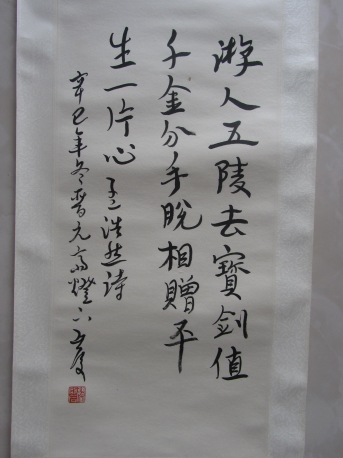 游人五陵去寶劍值
千金分手脫相贈平
生一片心孟浩然詩
辛巳年冬晉元齋燈下